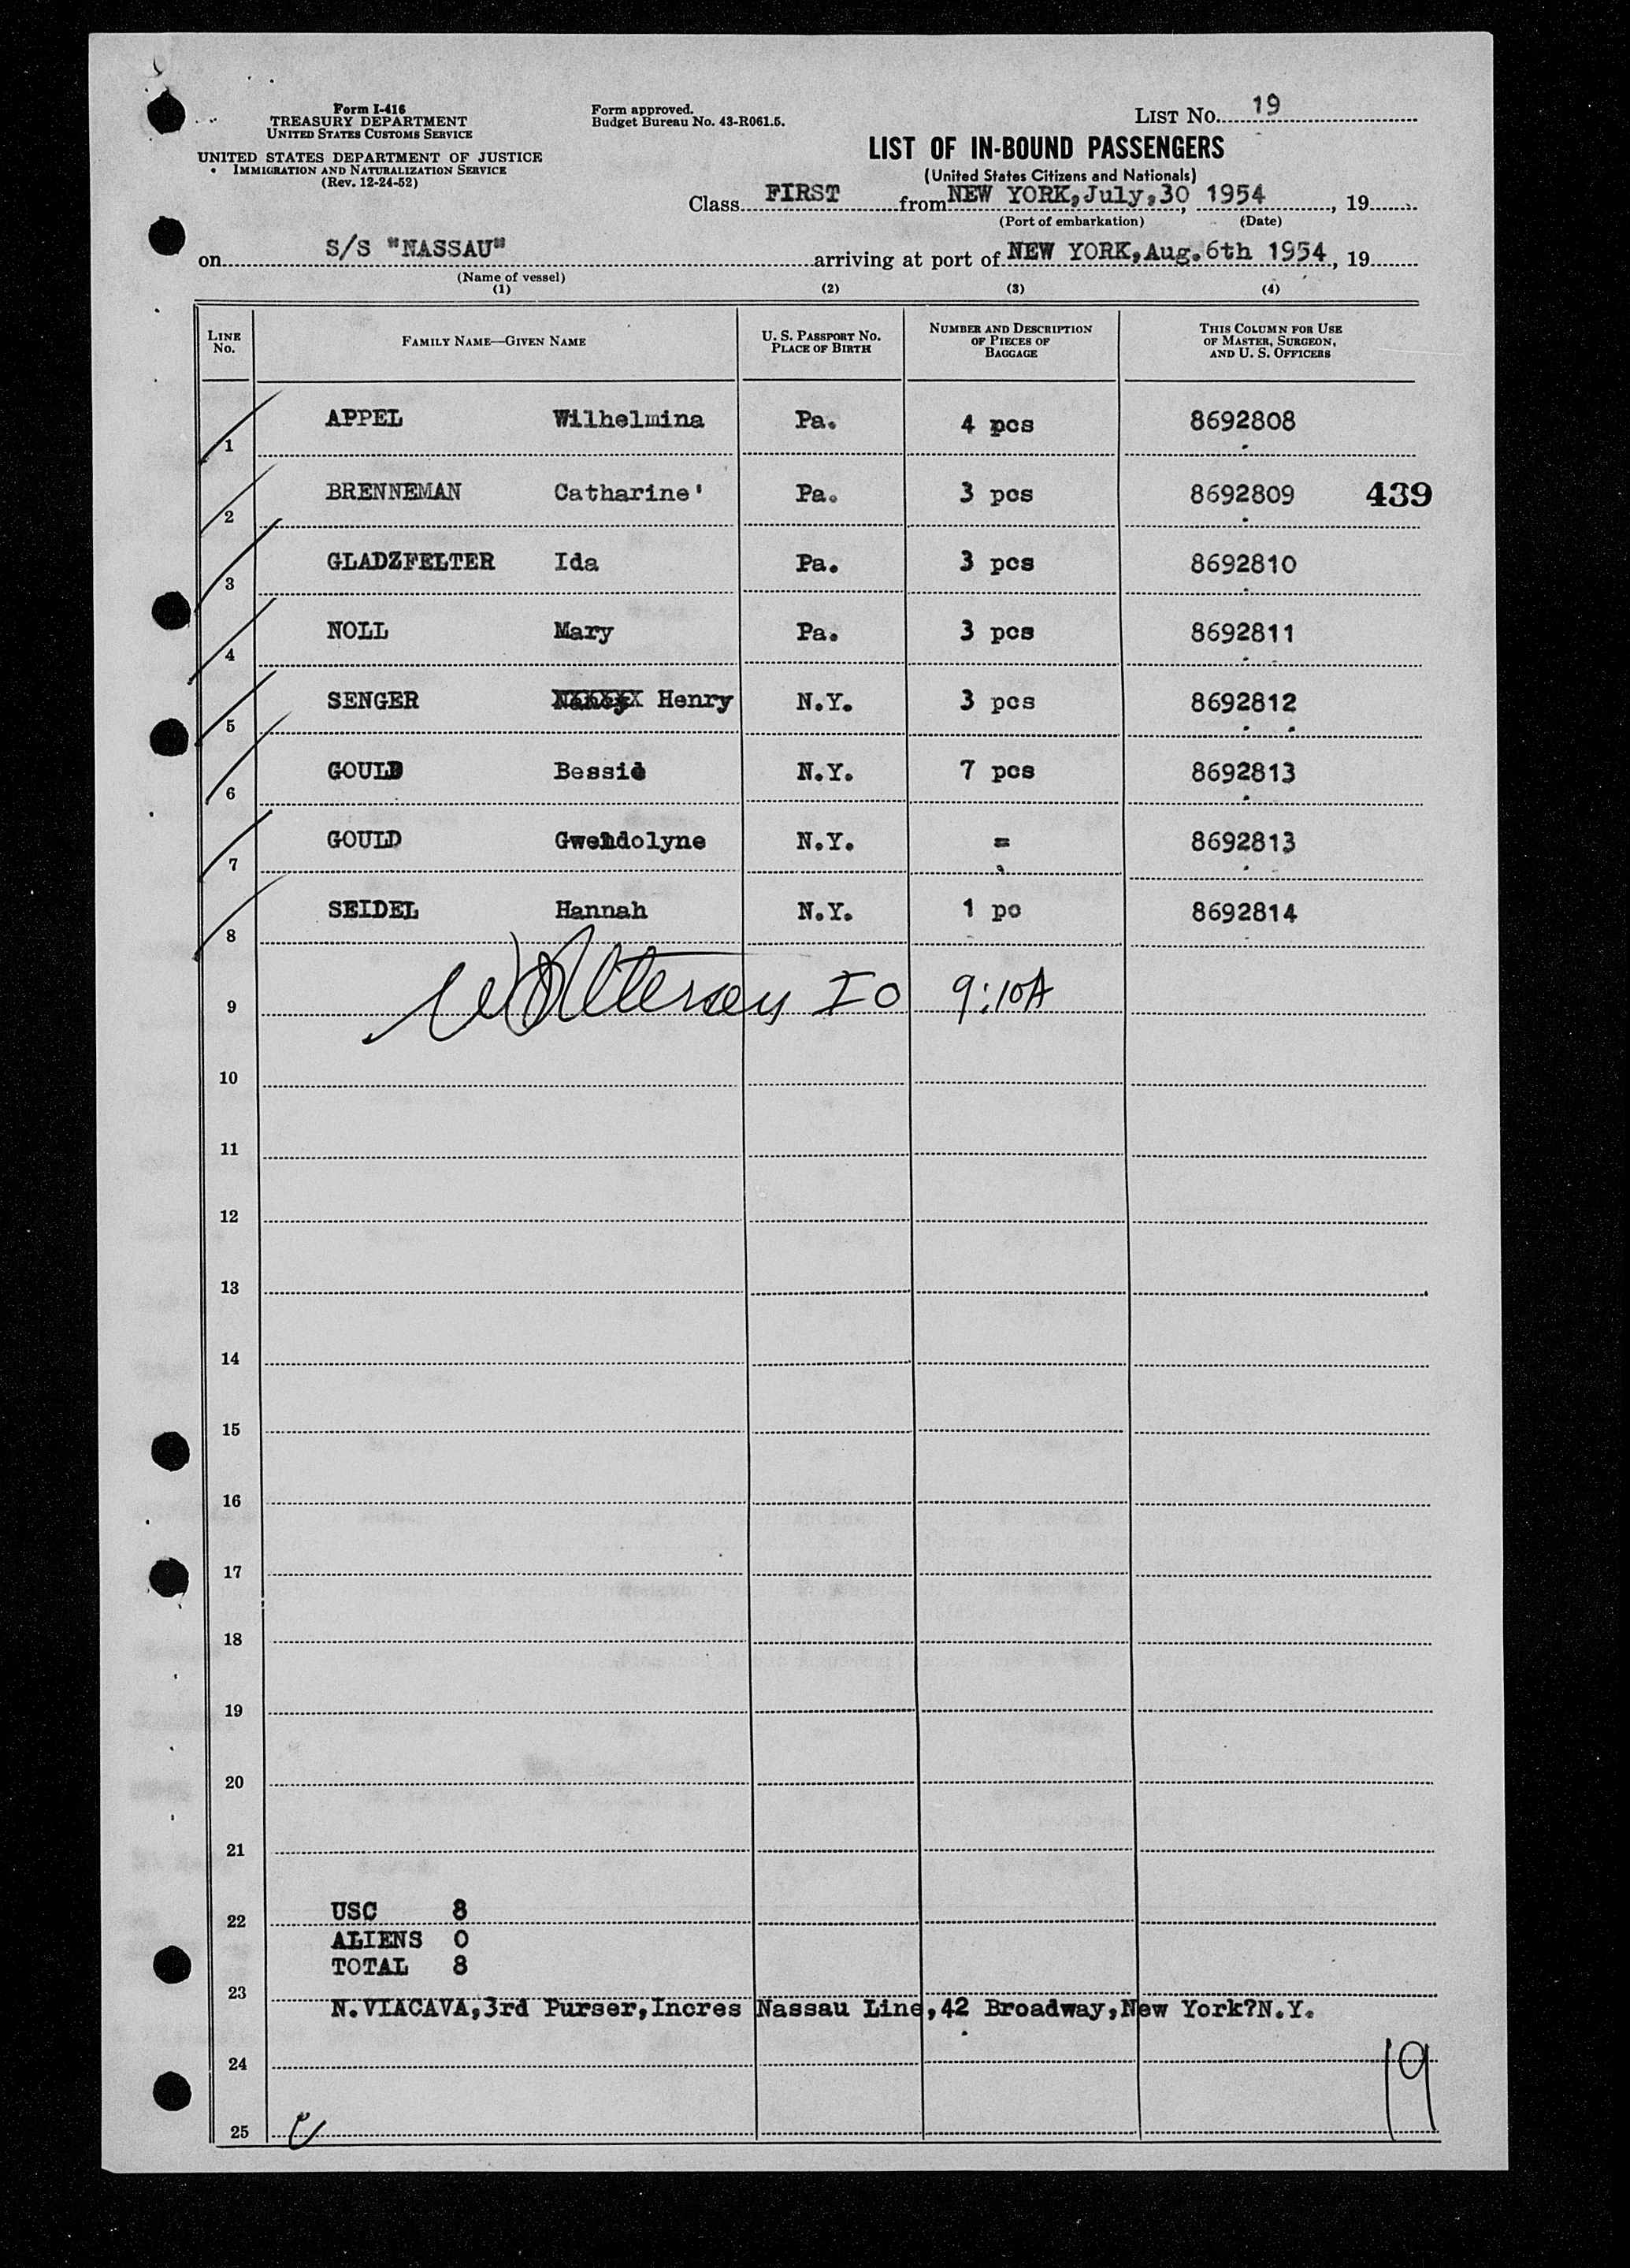 Form I-416
TREASURY DEPARTMENT
UNITED STATES CUSTOMS SERVICE
UNITED STATES DEPARTMENT OF JUSTICE
IMMIGRATION AND NATURALIZATION SERVICE
(Rev. 12-24-52)
Form approved.
Budget Bureau No. 43-R061.5.
LIST NO. 19
LIST OF IN-BOUND PASSENGERS
(United States Citizens and Nationals)
Class FIRST from NEW YORK, July, 30, 1954, 19
(Port of embarkation) (Date)
on S/S "NASSAU" arriving at port of NEW YORK, Aug. 6th 1954, 19
(Name of vessel)
(1) (2) (3) (4)
LINE NO. FAMILY NAME—GIVEN NAME U. S. PASSPORT NO. PLACE OF BIRTH NUMBER AND DESCRIPTION OF PIECES OF BAGGAGE THIS COLUMN FOR USE OF MASTER, SURGEON, AND U. S. OFFICERS
1 APPEL Wilhelmina Pa. 4 pcs 8692808
2 BRENNEMAN Catharine' Pa. 3 pcs 8692809 439
3 GLADZFELTER Ida Pa. 3 pcs 8692810
4 NOLL Mary Pa. 3 pcs 8692811
5 SENGER Henry N.Y. 3 pcs 8692812
6 GOULD Bessie N.Y. 7 pcs 8692813
7 GOULD Gwendolyne N.Y. = 8692813
8 SEIDEL Hannah N.Y. 1 pc 8692814
9 IO 9:10A
10
11
12
13
14
15
16
17
18
19
20
21
22 USC 8
ALIENS 0
TOTAL 8
23
N.VIACAVA,3rd Purser,Incres Nassau Line,42 Broadway,New York?N.Y.
24
19
25